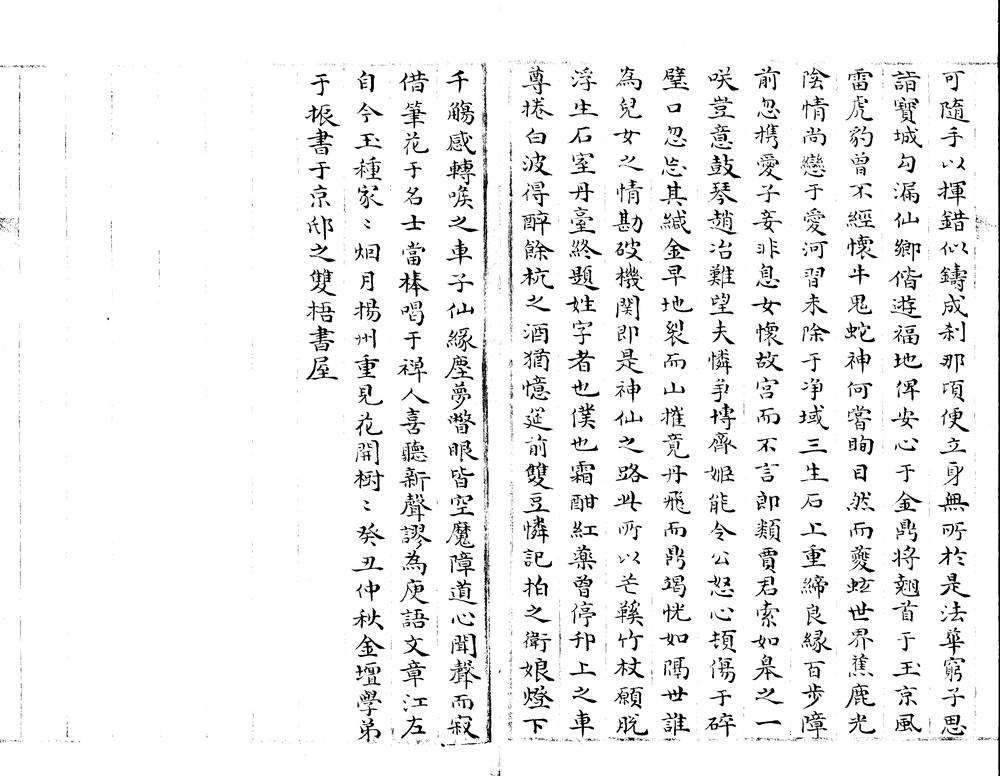 可隨手以揮錯似鑄成刹那頃便立身無所於是法華窮子思
詣寶城勾漏仙鄉偕遊福地俾安心于金鼎將翹首于玉京風
雷虎豹曾不經懷牛鬼蛇神何嘗眴目然而夔蚿世界蕉鹿光
陰情尚戀于愛河習未除于净域三生石上重締良縁百步障
前忽携愛子妾非息女懷故宫而不言郎類賈君索如皋之一
咲豈意鼓琴趙冶難望夫憐爭博齊姬能令公怒心頓傷于碎
璧口忽忘其緘金早地裂而山摧竟丹飛而鼎竭恍如隔世誰
為兒女之情勘破機関即是神仙之路此所以芒鞵竹杖願脱
浮生石室丹臺終題姓字者也僕也霜酣紅藥曾停邗上之車
尊捲白波得醉餘杭之酒猶憶筵前雙豆憐記拍之衛娘燈下
千觴感轉喉之車子仙緣塵夢瞥眼皆空魔障道心聞聲而寂
借筆花于名士當棒喝于禅人喜聽新聲謬為庾語文章江左
自今玉種家〻烟月揚州重見花開樹〻癸丑仲秋金壇學弟
于振書于京邸之雙梧書屋